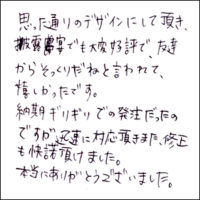 思った通りのデザインにして頂き、
披露宴でも大変好評で、友達
からそっくりだねと言われて、
嬉しかったです。
納期ギリギリでの発注だったの
ですが、迅速に対応頂きまた、修正
も快諾頂けました。
本当にありがとうございました。